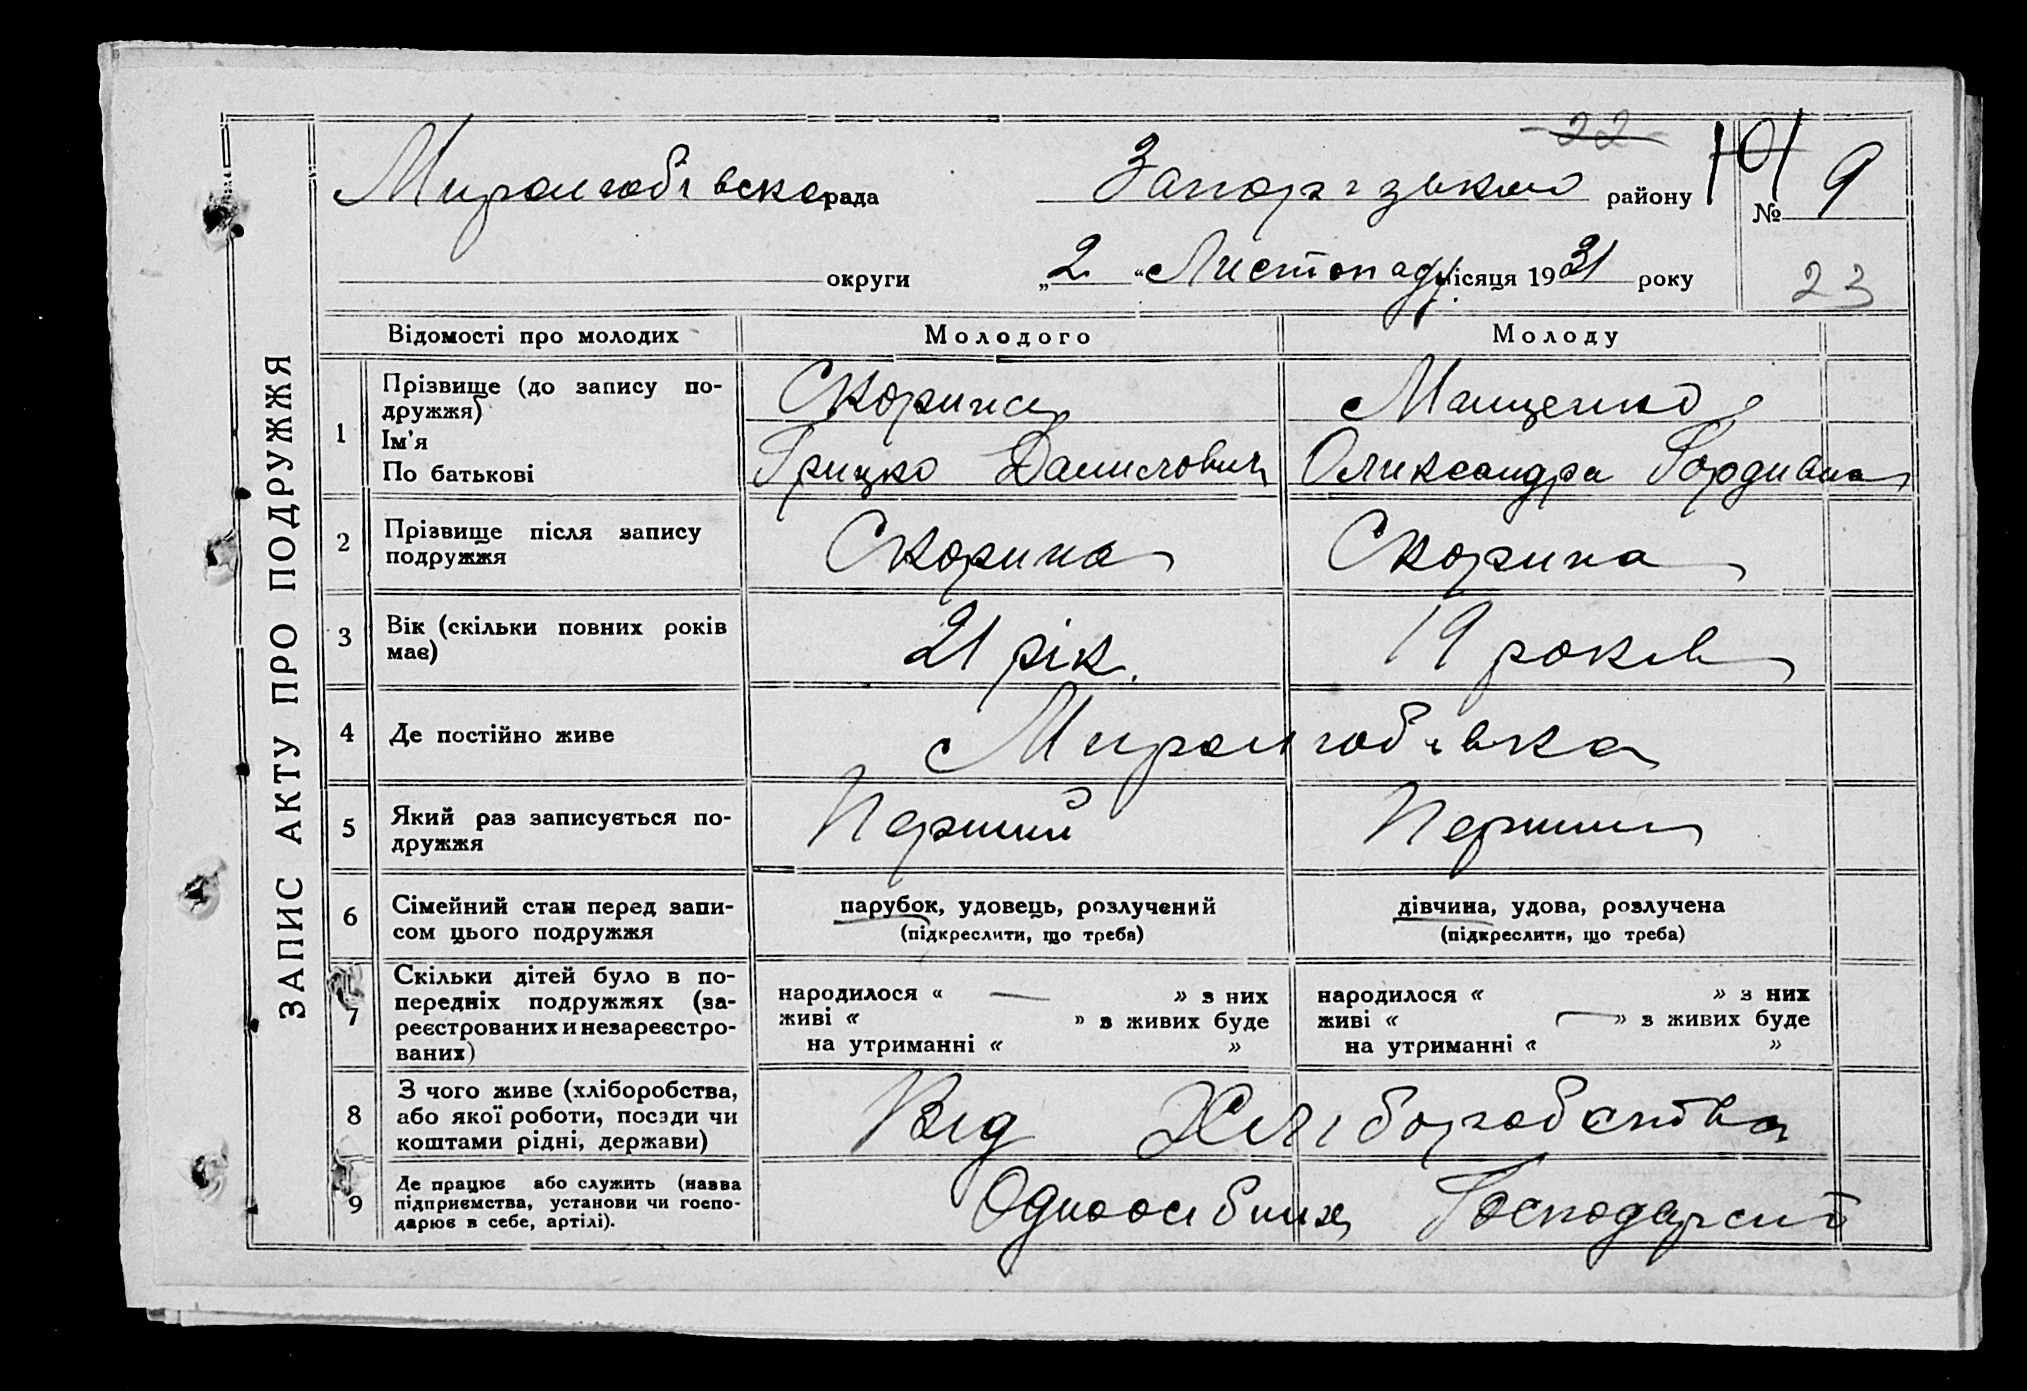 ЗАПИС АКТУ ПРО ПОДРУЖЖЯ
22
101
Миролюбівска рада Запорізького району № 9
округи „2“ Листопада місяця 1931 року
23
Відомості про молодих Молодого Молоду
1 Прізвище (до запису по-
дружжя) Скорина Мащенко
Ім'я
По батькові Грицко Данилович Олександра Гордиівна
2 Прізвище після запису
подружжя Скорина Скорина
3 Вік (скільки повних років
має) 21 рік. 19 років
4 Де постійно живе Миролюбівка
5 Який раз записується по-
дружжя Перший Перший
6 Сімейний стан перед запи-
сом цього подружжя
парубок, удовець, розлучений
(підкреслити, що треба)
дівчина, удова, розлучена
(підкреслити, що треба)
7 Скільки дітей було в по-
передніх подружжях (за-
реєстрованих и незареєстро-
ваних)
народилося « — » з них
живі « » з живих буде
на утриманні « »
народилося « » з них
живі « — » з живих буде
на утриманні « »
8 З чого живе (хліборобства,
або якої роботи, посади чи
коштами рідні, держави) Від Хліборобства
9 Де працює або служить (назва
підприємства, установи чи госпо-
дарює в себе, артілі). Одноосібних Господарств